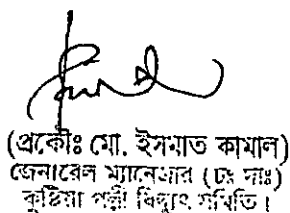 (প্রকৌঃ মো. ইসমাত কামাল)
জেনারেল ম্যানেজার (চঃ দাঃ)
কুষ্টিয়া পল্লী বিদ্যুৎ সমিতি।